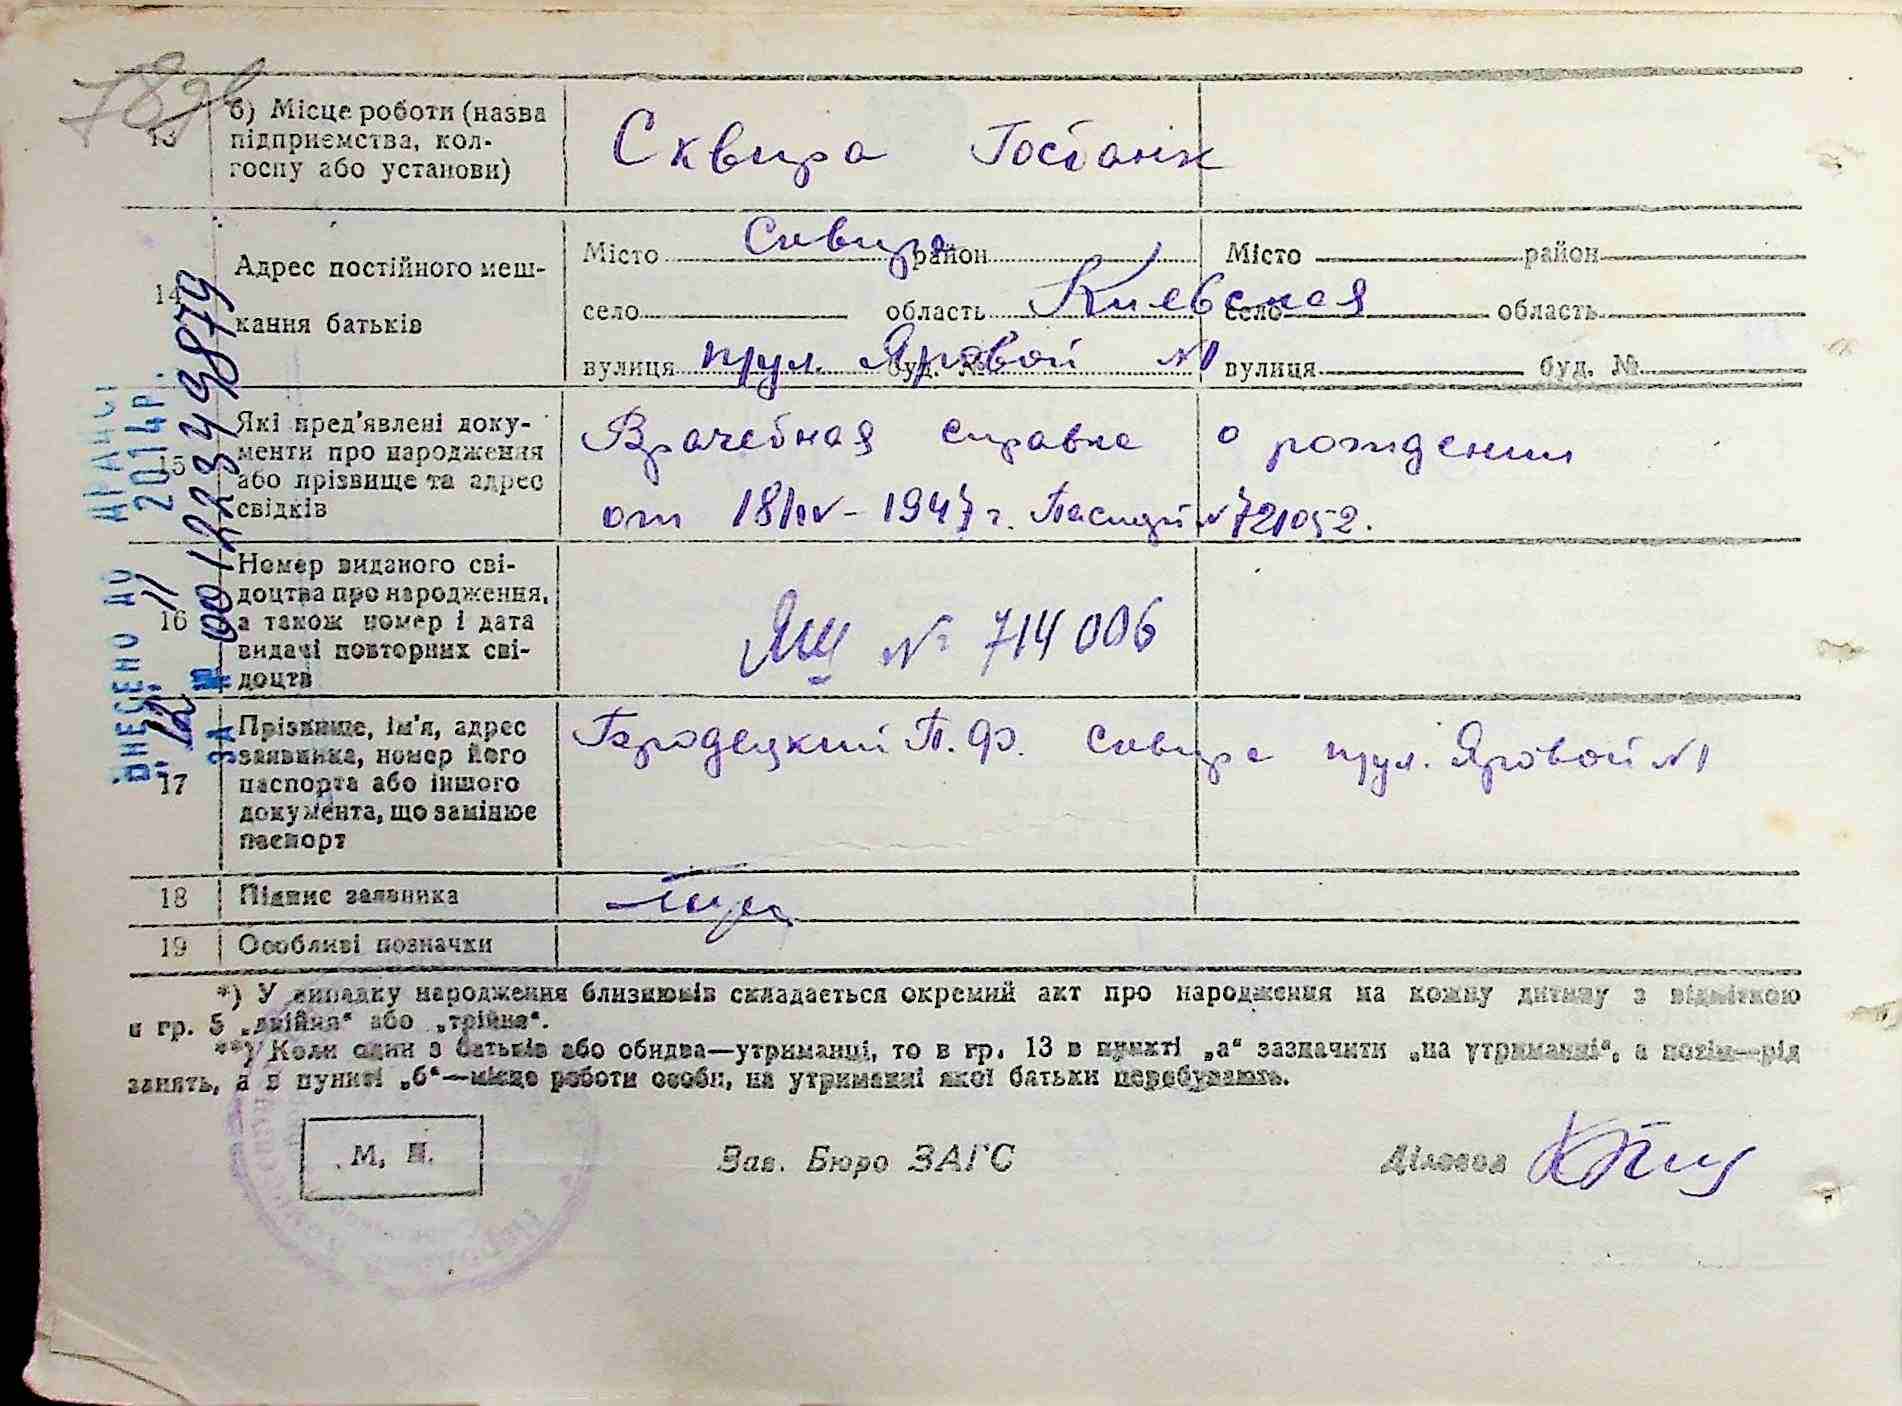 78
13 б) Місце роботи (назва
підприємства, кол-
госпу або установи)
Сквира Госбанк
14 Адрес постійного меш-
кання батьків
Місто Сквира район
село область Киевская
вулиця пул. Яровой буд. № №1
Місто район
село область
вулиця буд. №
15 Які пред'явлені доку-
менти про народження
або прізвище та адрес
свідків
Врачебная справка о рождении
от 18/ІV - 1947 г. Паспорт № 721052.
16 Номер виданого сві-
доцтва про народження,
а також номер і дата
видачі повторних сві-
доцтв
ЯШ № 714006
17 Прізвище, ім'я, адрес
заявника, номер його
паспорта або іншого
документа, що замінює
паспорт
Городецкий П. Ф. Сквира пул. Яровой №1
18 Підпис заявника
19 Особливі позначки
*) У випадку народження близнюків складається окремий акт про народження на кожну дитину з відміткою
в гр. 5 „двійня“ або „трійня“.
**) Коли один з батьків або обидва—утриманці, то в гр. 13 в пункті „а“ зазначити „на утриманні“, а потім—рід
занять, а в пункті „б“—місце роботи особи, на утриманні якої батьки перебувають.
М. П.
Зав. Бюро ЗАГС
Діловод
ВНЕСЕНО ДО ДРАЦС
12 11 2014р.
ЗА № 00122349879